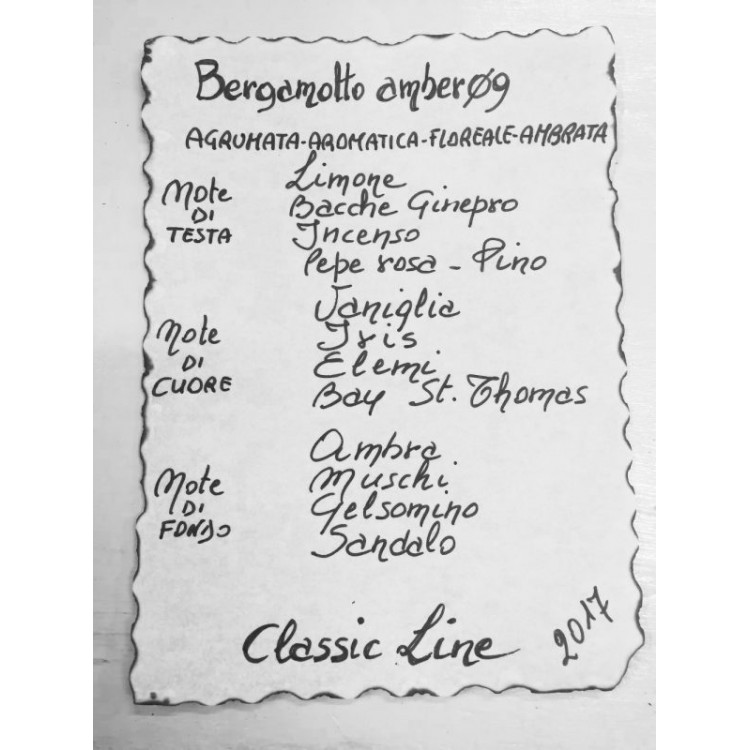 Bergamotto amber09
AGRUMATA-AROMATICA-FLOREALE-AMBRATA
Note
DI
TESTA
Limone
Bacche Ginepro
Incenso
Pepe rosa - Pino
Note
DI
CUORE
Vaniglia
Iris
Elemi
Bay St. Thomas
Note
DI
FONDO
Ambra
Muschi
Gelsomino
Sandalo
Classic Line
2017